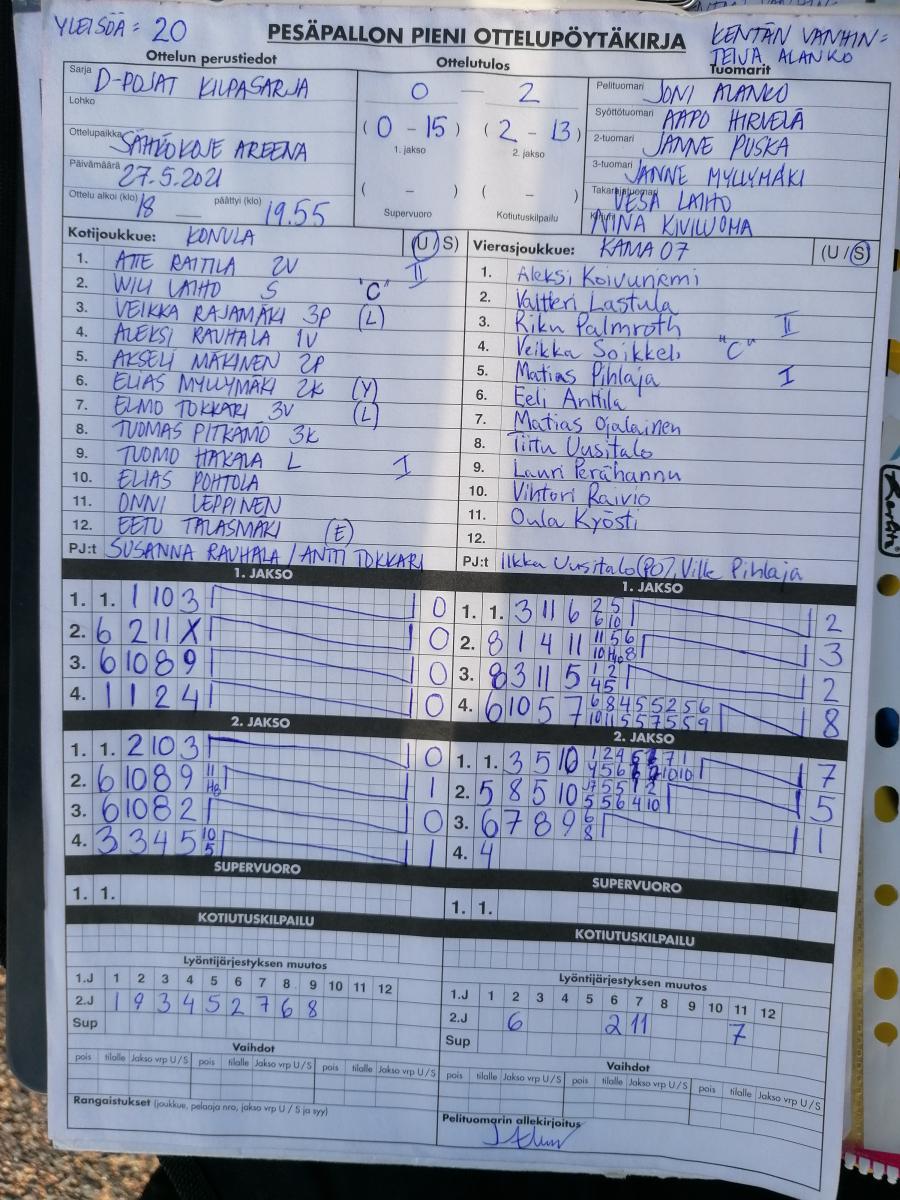 YLEISÖÄ: 20
PESÄPALLON PIENI OTTELUPÖYTÄKIRJA
KENTÄN VANHIN=
TEIJA ALANKO
Ottelun perustiedot
Ottelutulos
Tuomarit
Sarja D-POJAT KILPASARJA
Lohko
Ottelupaikka SÄHKÖKOJE AREENA
Päivämäärä 27.5.2021
Ottelu alkoi (klo) 18 — päättyi (klo) 19.55
0 – 2
( 0 - 15 ) ( 2 - 13 )
1. jakso 2. jakso
( - ) ( - )
Supervuoro Kotiutuskilpailu
Pelituomari JONI ALANKO
Syöttötuomari AAPO HIRVELÄ
2-tuomari JANNE PUSKA
3-tuomari JANNE MYLLYMÄKI
Takarajatuomari VESA LAIHO
Kirjuri NINA KIVILUOMA
Kotijoukkue: KONULA (U/S)
1. ATTE RAITILA 2V II
2. WILI LAIHO S "C"
3. VEIKKA RAJAMÄKI 3P (L)
4. ALEKSI RAUHALA 1V
5. AKSELI MÄKINEN 2P
6. ELIAS MYLLYMÄKI 2K (Y)
7. ELMO TOKKARI 3V (L)
8. TUOMAS PITKÄMÖ 3K
9. TUOMO HAKALA L I
10. ELIAS POHTOLA
11. ONNI LEPPINEN
12. EETU TALASMÄKI (E)
PJ:t SUSANNA RAUHALA / ANTTI TOKKARI
Vierasjoukkue: KAMA 07 (U/S)
1. Aleksi Koivuniemi
2. Valtteri Lastula
3. Riku Palmroth II
4. Veikka Soikkeli "C"
5. Matias Pihlaja I
6. Eeli Anttila
7. Matias Ojalainen
8. Tiitu Uusitalo
9. Lauri Perähannu
10. Vihtori Raivio
11. Oula Kyösti
12.
PJ:t Ilkka Uusitalo (PO), Ville Pihlaja
1. JAKSO
1. 1. 1 10 3 0
2. 6 2 11 X 0
3. 6 10 8 9 0
4. 1 1 2 4 0
2. JAKSO
1. 1. 2 10 3 0
2. 6 10 8 9 11 H8 1
3. 6 10 8 2 0
4. 3 3 4 5 10 5 1
SUPERVUORO
1. 1.
KOTIUTUSKILPAILU
Lyöntijärjestyksen muutos
1.J 1 2 3 4 5 6 7 8 9 10 11 12
2.J 1 9 3 4 5 2 7 6 8
Sup
Vaihdot
pois tilalle Jakso vrp U/S pois tilalle Jakso vrp U/S pois tilalle Jakso vrp U/S
Rangaistukset (joukkue, pelaaja nro, jakso vrp U / S ja syy)
1. JAKSO
1. 1. 3 11 6 2 5 6 10 2
2. 8 1 4 11 3
3. 8 3 11 5 1 2 4 5 2
4. 6 10 5 7 6 8 4 5 5 2 5 6 10 11 5 5 7 5 5 9 8
2. JAKSO
1. 1. 3 5 10 7
2. 5 8 5 10 5
3. 6 7 8 9 6 8 1
4. 4
SUPERVUORO
1. 1.
KOTIUTUSKILPAILU
Lyöntijärjestyksen muutos
1.J 1 2 3 4 5 6 7 8 9 10 11 12
2.J 6 2 11 7
Sup
Vaihdot
pois tilalle Jakso vrp U/S pois tilalle Jakso vrp U/S pois tilalle Jakso vrp U/S
Pelituomarin allekirjoitus